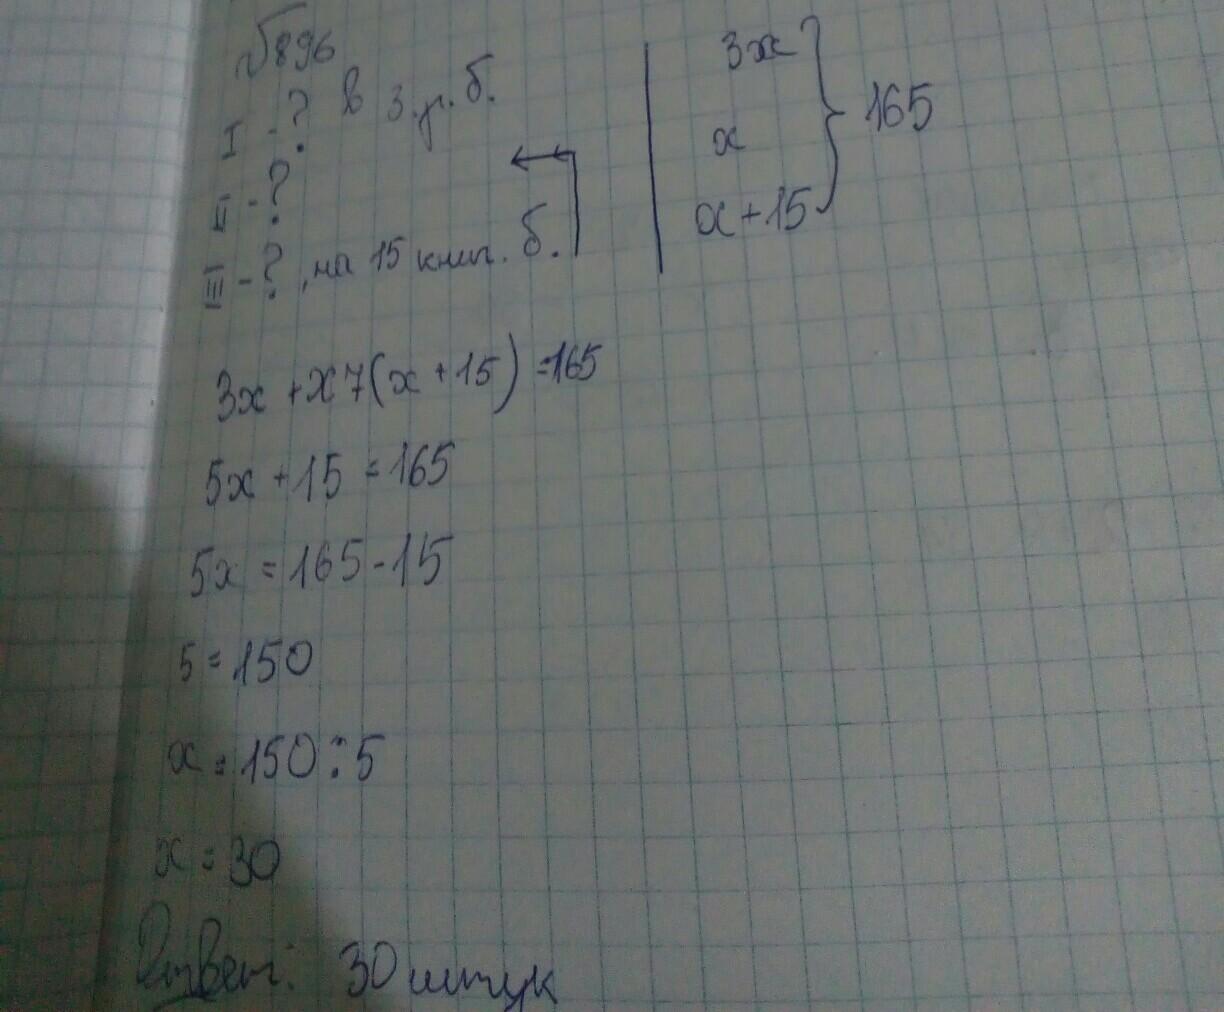 №896
I - ? в 3 р. б.
II - ?
III - ? , на 15 книг. б.
3x
x
x + 15
165
3x + x + (x + 15) = 165
5x + 15 = 165
5x = 165 - 15
5 = 150
x = 150 : 5
x = 30
Ответ: 30 штук